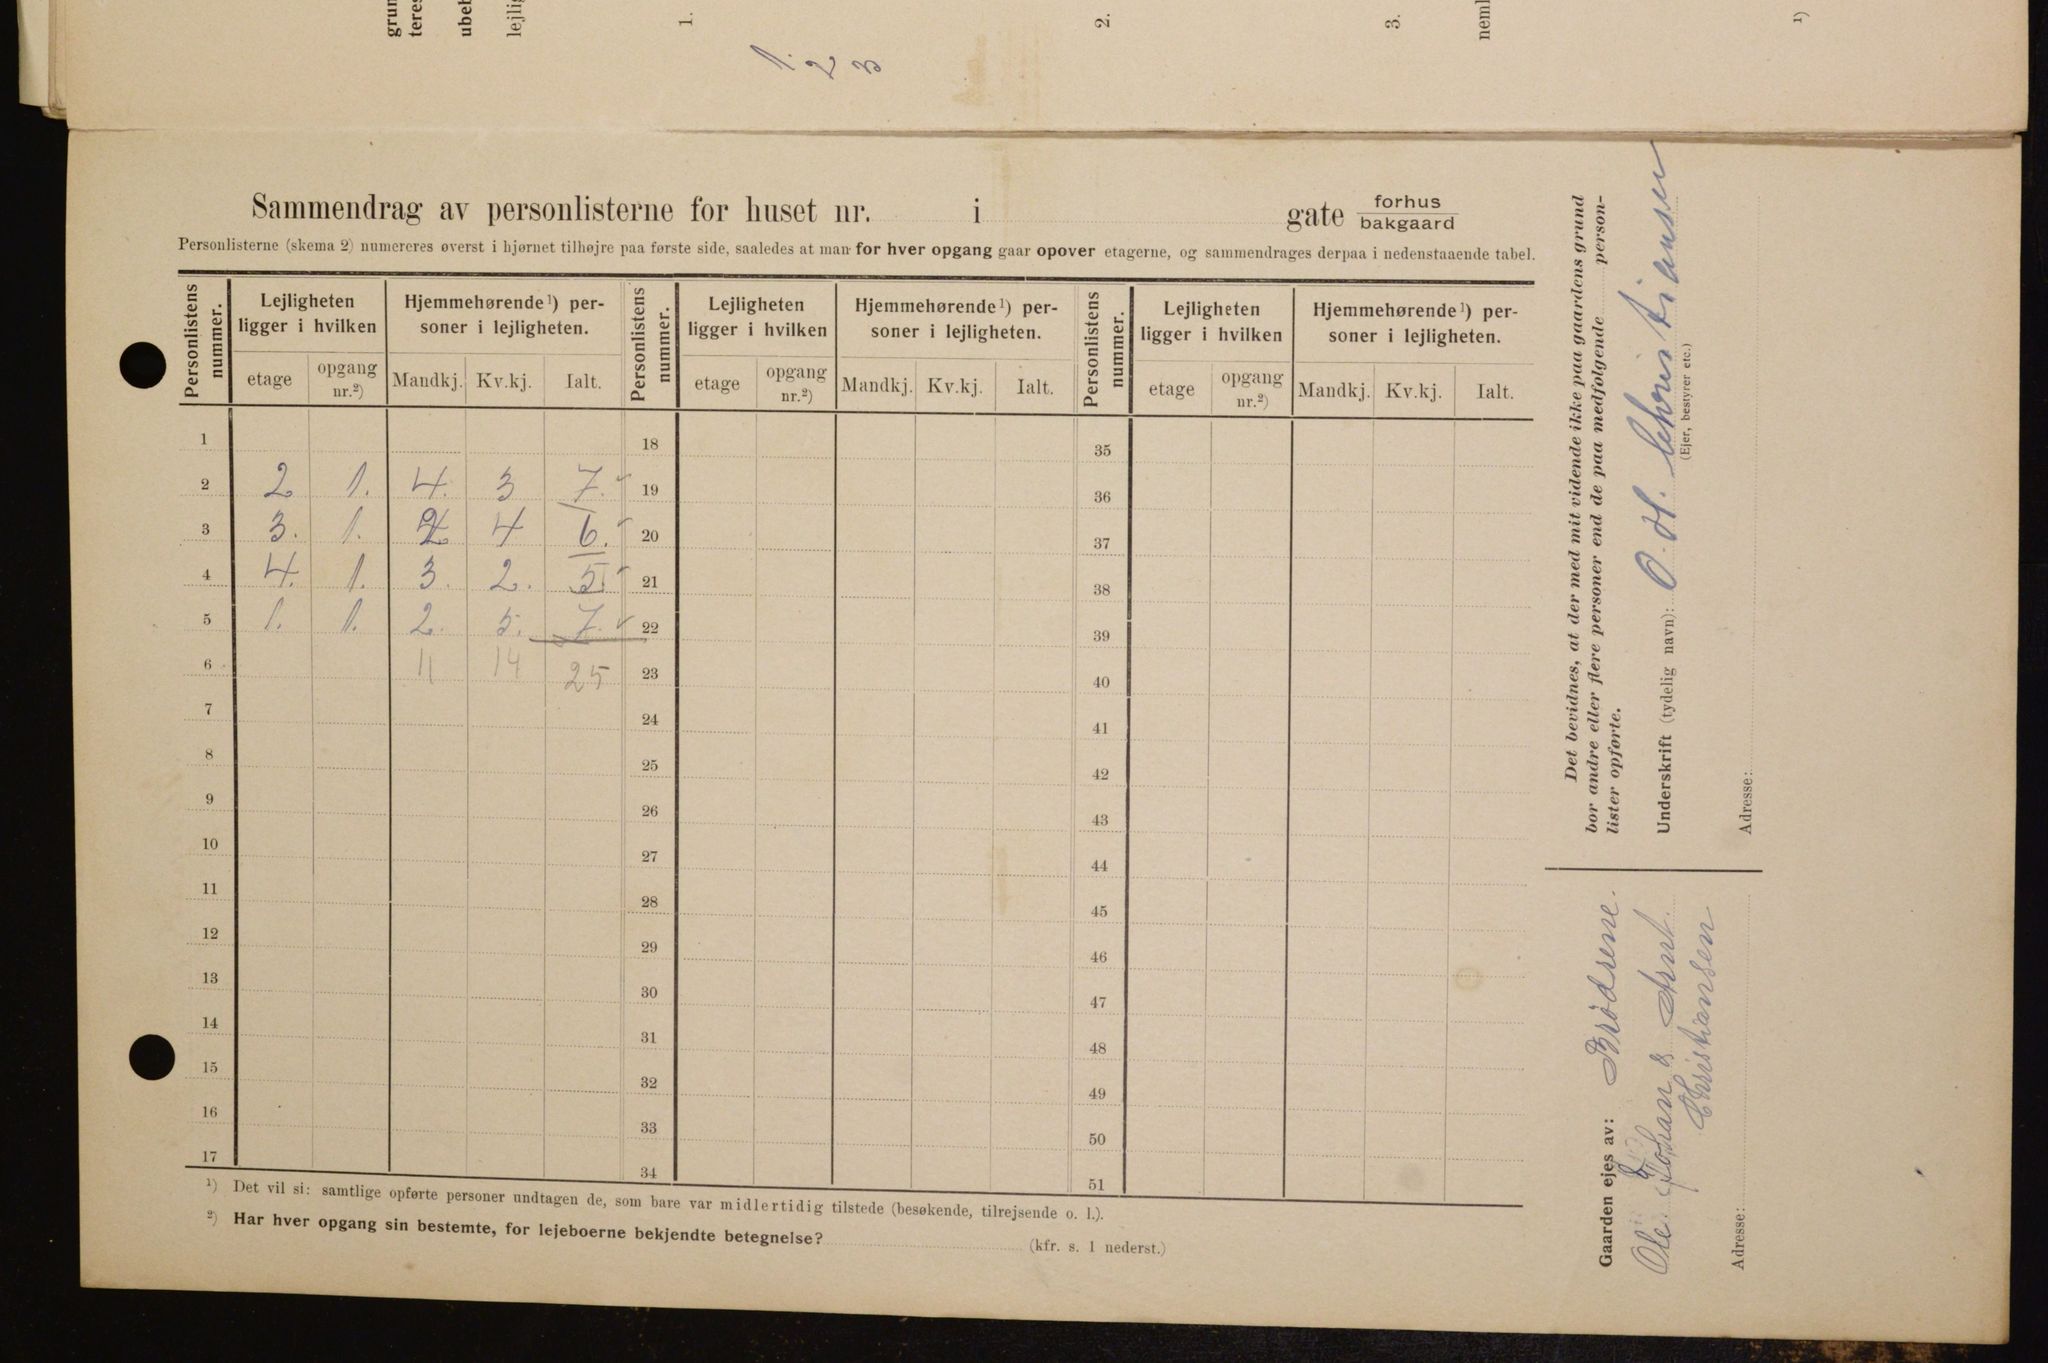 grun
teres
ubeb
lejlig
1.
2.
3.
neml
1)
1. 2 3
Sammendrag av personlisterne for huset nr. i gate forhus
bakgaard
Personlisterne (skema 2) numereres øverst i hjørnet tilhøjre paa første side, saaledes at man for hver opgang gaar opover etagerne, og sammendrages derpaa i nedenstaaende tabel.
Personlistens nummer. Lejligheten ligger i hvilken Hjemmehørende¹) personer i lejligheten. Personlistens nummer. Lejligheten ligger i hvilken Hjemmehørende¹) personer i lejligheten. Personlistens nummer. Lejligheten ligger i hvilken Hjemmehørende¹) personer i lejligheten.
etage opgang nr.²) Mandkj. Kv.kj. Ialt. etage opgang nr.²) Mandkj. Kv.kj. Ialt. etage opgang nr.²) Mandkj. Kv.kj. Ialt.
1 18 35
2 2 1. 4. 3 7. 19 36
3 3. 1. 2 4 6. 20 37
4 4. 1. 3. 2. 5. 21 38
5 1. 1. 2. 5. 7. 22 39
6 11 14 25 23 40
7 24 41
8 25 42
9 26 43
10 27 44
11 28 45
12 29 46
13 30 47
14 31 48
15 32 49
16 33 50
17 34 51
¹) Det vil si: samtlige opførte personer undtagen de, som bare var midlertidig tilstede (besøkende, tilrejsende o. l.).
²) Har hver opgang sin bestemte, for lejeboerne bekjendte betegnelse? (kfr. s. 1 nederst.)
Det bevidnes, at der med mit vidende ikke paa gaardens grund
bor andre eller flere personer end de paa medfølgende person-
lister opførte.
Underskrift (tydelig navn): O. H. Christiansen
(Ejer, bestyrer etc.)
Adresse:
Gaarden ejes av: Brødrene
Ole Johan & Arnt
Christiansen
Adresse: